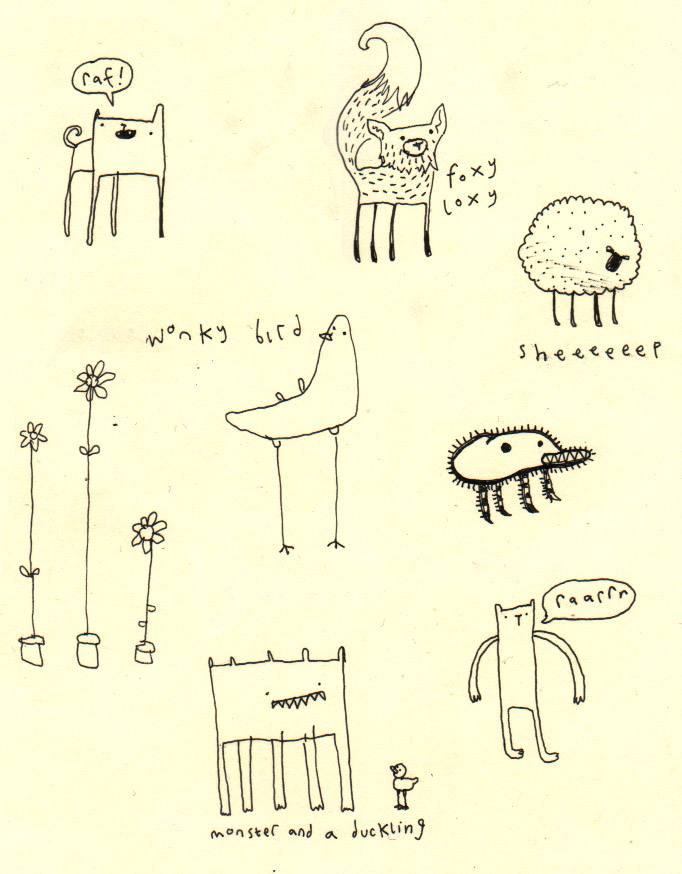 raf!
foxy
loxy
sheeeeeep
wonky bird
raarrr
monster and a duckling